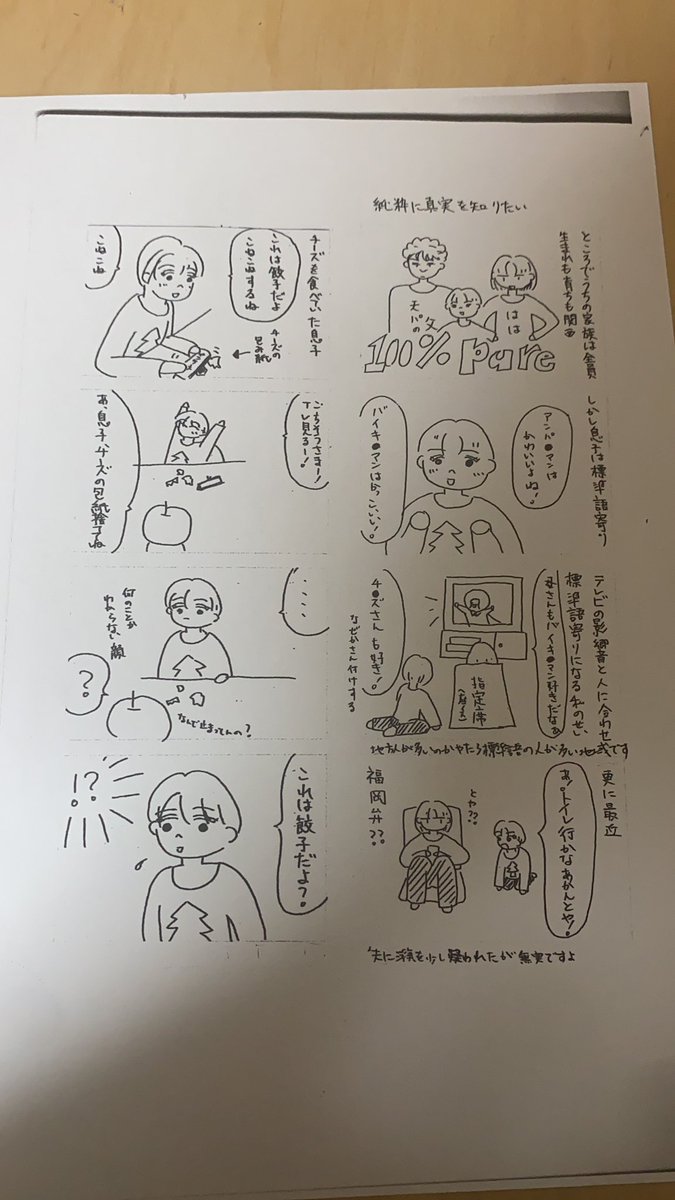 純粋に真実を知りたい
ところでうちの家族は全員
生まれも育ちも関西
天パの
父
はは
100% Pure
しかし息子は標準語寄り
アンパ●マンは
かわいいよね!
バイキ●マンはかっこいい!
テレビの影響と人に合わせ
標準語寄りになる私のせい
母さんもバイキ●マン好きだなぁ
チ●ズさんも好き!
なぜかさん付けする
指定席
地方人が多いのかやたら標準語の人が多い地域です
更に最近
あ!トイレ行かなあかんとや!
とや??
福岡弁??
夫に浮気を少し疑われたが無実ですよ
チーズを食べていた息子
これは餃子だよ
こねこねするね
チーズの
包み紙
こねこね
ごちそうさまー!
テレビ見るー!
あ、息子、チーズの包み紙捨ててね
・・・・
何のことか
わからない顔
?
なんで止まってんの?
これは餃子だよ?
!?